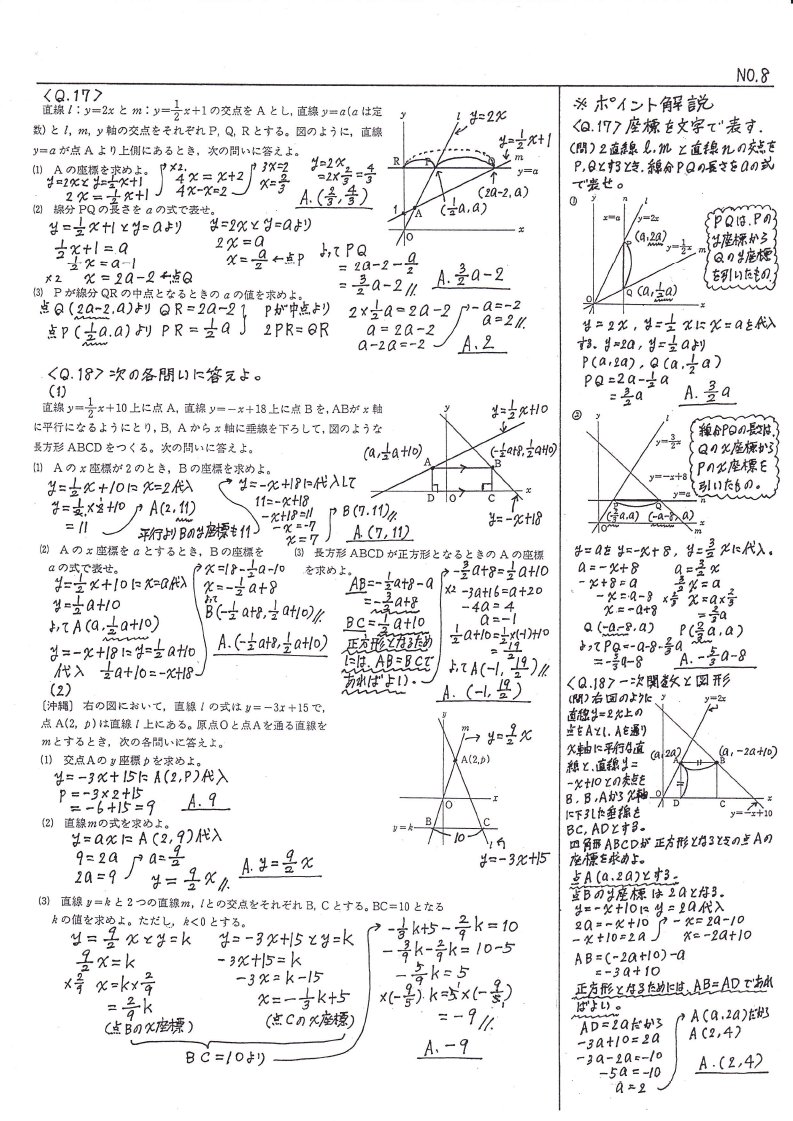 NO.8
<Q.17>
直線 l：y=2x と m：y=1/2x+1 の交点を A とし，直線 y=a(a は定
数)と l, m, y 軸の交点をそれぞれ P, Q, R とする。図のように，直線
y=a が点 A より上側にあるとき，次の問いに答えよ。
(1) A の座標を求めよ。
y=2xとy=1/2x+1
2x=1/2x+1
×2
4x=x+2
4x-x=2
3x=2
x=2/3
y=2x
y=2×2/3=4/3
A.(2/3, 4/3)
(2) 線分 PQ の長さを a の式で表せ。
y=1/2x+1とy=aより
1/2x+1=a
1/2x=a-1
×2 x=2a-2 ←点Q
y=2xとy=aより
2x=a
x=a/2 ←点P
よってPQ
=2a-2-a/2
=3/2a-2//
A. 3/2a-2
(3) P が線分 QR の中点となるときの a の値を求めよ。
点Q(2a-2,a)より QR=2a-2
点P(1/2a,a)より PR=1/2a
Pが中点より
2PR=QR
2×1/2a=2a-2
a=2a-2
a-2a=-2
-a=-2
a=2//
A.2
y
l
y=2x
y=1/2x+1
m
R
P
Q
y=a
(2a-2,a)
1
A
(1/2a,a)
O
x
<Q.18>次の各問いに答えよ。
(1)
直線 y=1/2x+10 上に点 A，直線 y=-x+18 上に点 B を，AB が x 軸
に平行になるようにとり，B, A から x 軸に垂線を下ろして，図のような
長方形 ABCD をつくる。次の問いに答えよ。
(1) A の x 座標が 2 のとき，B の座標を求めよ。
y=1/2x+10にx=2代入
y=1/2×2+10
=11
A(2,11)
平行よりBのy座標も11
y=-x+18に代入して
11=-x+18
-x+18=11
-x=-7
x=7
B(7.11)
A.(7,11)
y
y=1/2x+10
(a,1/2a+10)
(-1/2a+8,1/2a+10)
A
B
D
O
C
x
y=-x+18
(2) A の x 座標を a とするとき，B の座標を
a の式で表せ。
y=1/2x+10にx=a代入
y=1/2a+10
よってA(a,1/2a+10)
y=-x+18にy=1/2a+10
代入 1/2a+10=-x+18
x=18-1/2a-10
x=-1/2a+8
よって
B(-1/2a+8,1/2a+10)//
A.(-1/2a+8,1/2a+10)
(3) 長方形 ABCD が正方形となるときの A の座標
を求めよ。
AB=-1/2a+8-a
=-3/2a+8
BC=1/2a+10
正方形となるため
には、AB=BCで
あればよい。
-3/2a+8=1/2a+10
×2 -3a+16=a+20
-4a=4
a=-1
1/2a+10=1/2×(-1)+10
=19/2
よってA(-1,19/2)//
A.(-1,19/2)
(2)
[沖縄] 右の図において，直線 l の式は y=-3x+15 で，
点 A(2, p) は直線 l 上にある。原点 O と点 A を通る直線を
m とするとき，次の各問いに答えよ。
(1) 交点 A の y 座標 p を求めよ。
y=-3x+15にA(2,P)代入
P=-3×2+15
=-6+15=9
A.9
(2) 直線 m の式を求めよ。
y=axにA(2,9)代入
9=2a
2a=9
a=9/2
y=9/2x//
A.y=9/2x
(3) 直線 y=k と 2 つの直線 m, l との交点をそれぞれ B, C とする。BC=10 となる
k の値を求めよ。ただし，k<0 とする。
y=9/2xとy=k
9/2x=k
×2/9 x=k×2/9
=2/9k
(点Bのx座標)
y=-3x+15とy=k
-3x+15=k
-3x=k-15
x=-1/3k+5
(点Cのx座標)
BC=10より
-1/3k+5-2/9k=10
-3/9k-2/9k=10-5
-5/9k=5
×(-9/5) k=5×(-9/5)
=-9//
A.-9
y
m
y=9/2x
A(2,p)
O
x
y=k
B
10
C
l
y=-3x+15
※ポイント解説
<Q.17>座標を文字で表す.
(問)2直線l.mと直線nの交点を
P,Qとするとき.線分PQの長さをaの式
で表せ。
①
y
n
x=a
l
y=2x
P
(a,2a)
y=1/2x
m
Q
(a,1/2a)
O
x
PQは、Pの
y座標から
Qのy座標
を引いたもの
y=2x,y=1/2xにx=aを代入
する.y=2a,y=1/2aより
P(a,2a),Q(a,1/2a)
PQ=2a-1/2a
=3/2a
A.3/2a
②
y
l
y=3/2x
y=-x+8
y=a
n
P
Q
(2/3a,a)
(-a-8,a)
O
m
x
線分PQの長さは、
Qのx座標から
Pのx座標を
引いたもの。
y=aをy=-x+8,y=3/2xに代入。
a=-x+8
-x+8=a
-x=a-8
x=-a+8
a=3/2x
3/2x=a
×2/3 x=a×2/3
=2/3a
Q(-a-8,a) P(2/3a,a)
よってPQ=-a-8-2/3a
=-5/3a-8
A.-5/3a-8
<Q.18>一次関数と図形
(問)右図のように
直線y=2x上の
点をAとし、Aを通り
x軸に平行な直
線と、直線y=
-x+10との交点を
B、B、Aからx軸
に下ろした垂線を
BC,ADとする。
四角形ABCDが正方形となるときの点Aの
座標を求めよ。
y
y=2x
(a,2a)
(a,-2a+10)
A
B
O
D
C
x
y=-x+10
点A(a.2a)とする.
点Bのy座標は2aとなる.
y=-x+10にy=2a代入
2a=-x+10
-x+10=2a
-x=2a-10
x=-2a+10
AB=(-2a+10)-a
=-3a+10
正方形となるためには、AB=ADであれ
ばよい。
AD=2aだから
-3a+10=2a
-3a-2a=-10
-5a=-10
a=2
A(a.2a)だから
A(2,4)
A.(2,4)